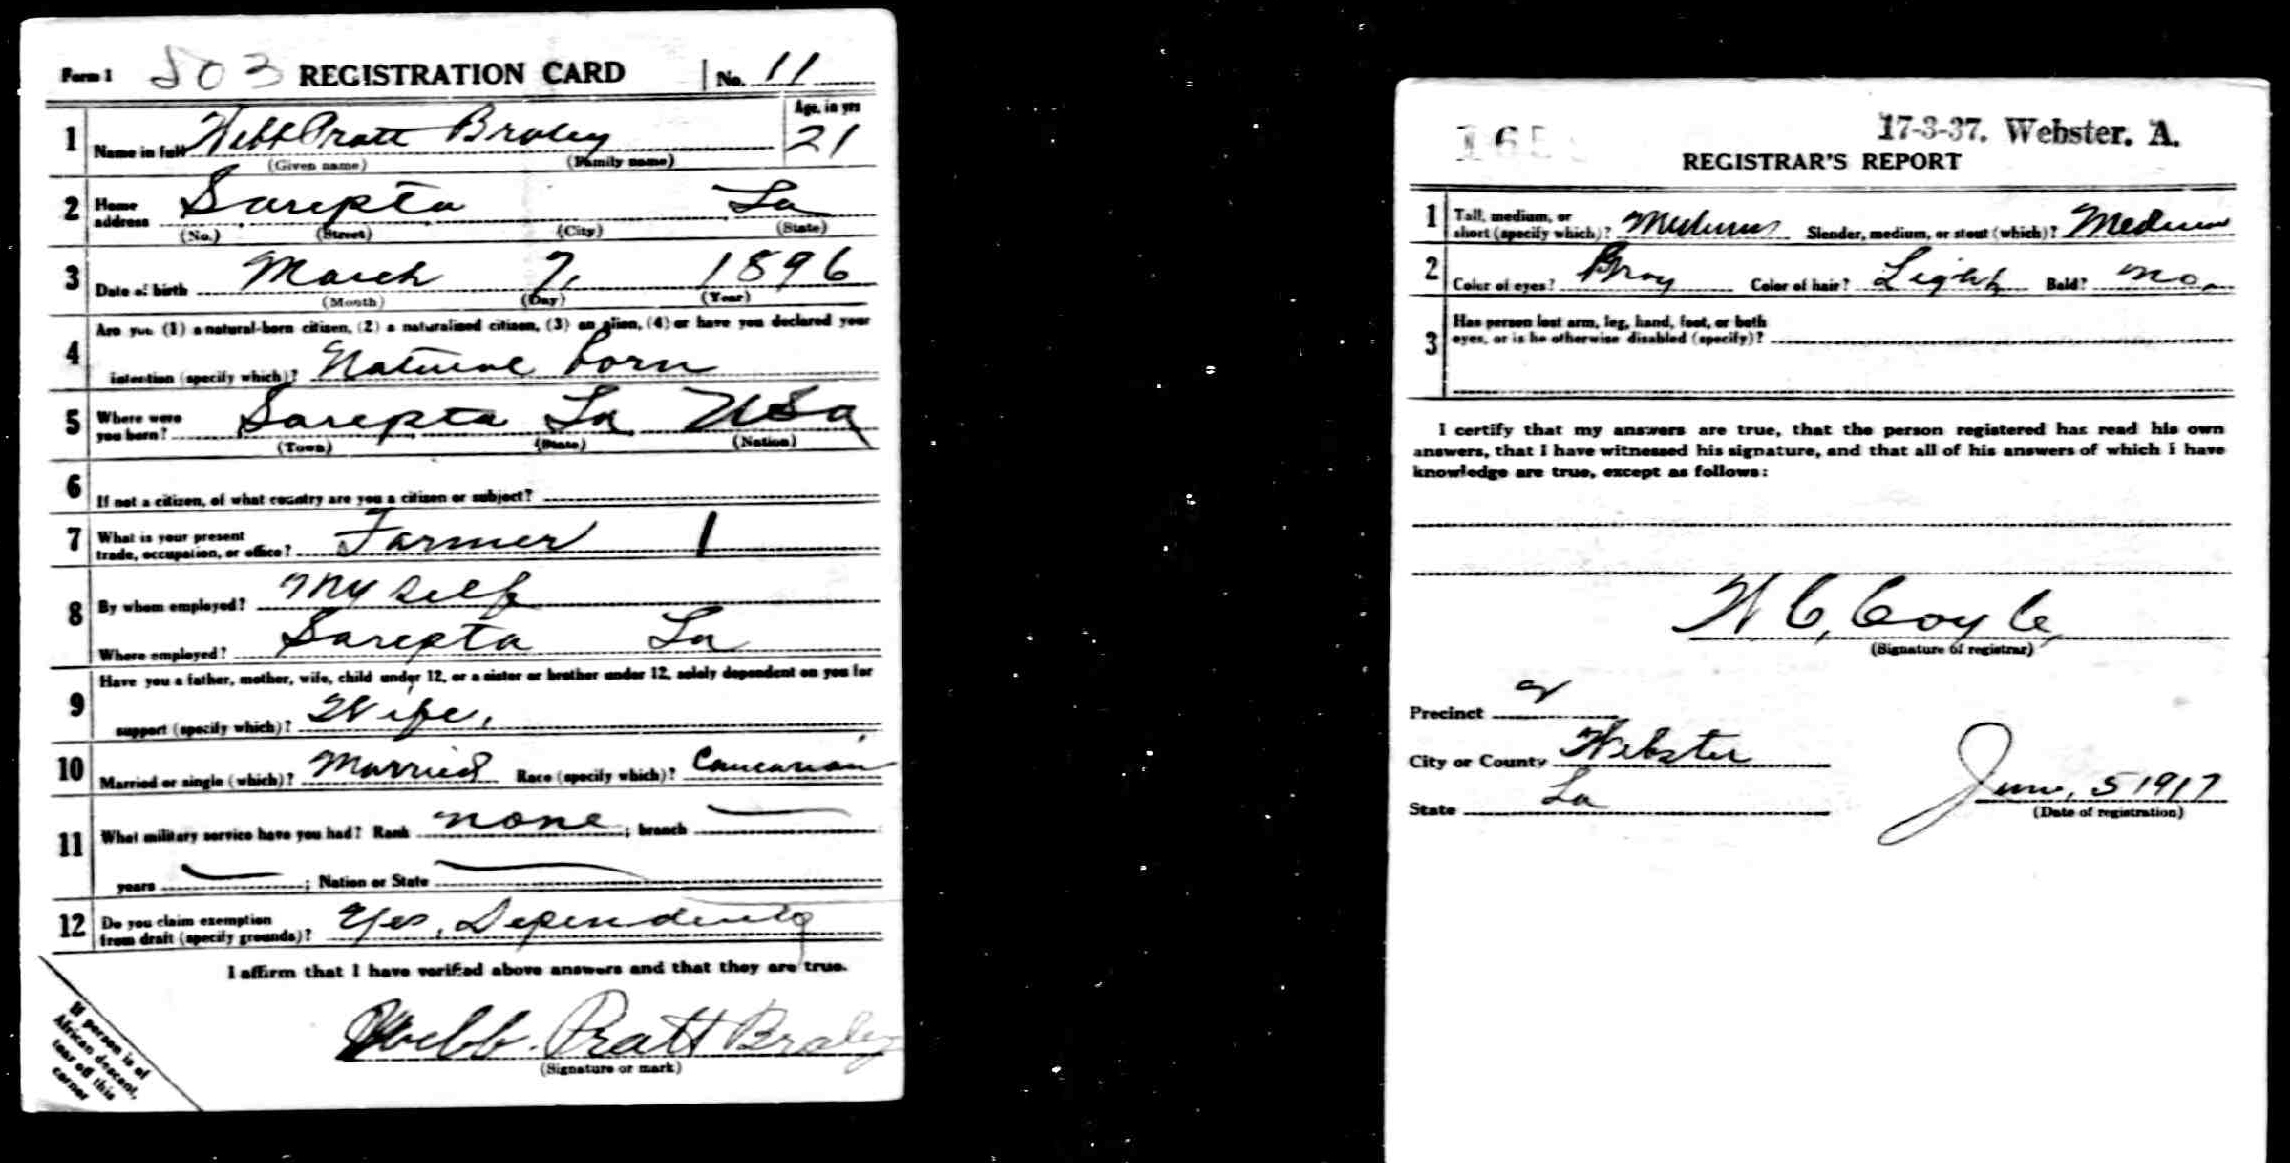 Form 1 503 REGISTRATION CARD No. 11
1 Name in full Webb Pratt Braley Age, in yrs 21
(Given name) (Family name)
2 Home address Sarepta La
(No.) (Street) (City) (State)
3 Date of birth March 7, 1896
(Month) (Day) (Year)
4 Are you (1) a natural-born citizen, (2) a naturalized citizen, (3) an alien, (4) or have you declared your
intention (specify which)? Natural born
5 Where were you born? Sarepta La USA
(Town) (State) (Nation)
6 If not a citizen, of what country are you a citizen or subject?
7 What is your present trade, occupation, or office? Farmer 1
8 By whom employed? My self
Where employed? Sarepta La
9 Have you a father, mother, wife, child under 12, or a sister or brother under 12, solely dependent on you for
support (specify which)? Wife,
10 Married or single (which)? Married Race (specify which)? Caucasian
11 What military service have you had? Rank none ; branch —
years — ; Nation or State —
12 Do you claim exemption from draft (specify grounds)? Yes, Dependents
I affirm that I have verified above answers and that they are true.
Webb. Pratt Braley
(Signature or mark)
If person is of
African descent,
tear off this
corner
17-3-37. Webster. A.
REGISTRAR'S REPORT
1 Tall, medium, or short (specify which)? Medium Slender, medium, or stout (which)? Medium
2 Color of eyes? Gray Color of hair? Light Bald? no
3 Has person lost arm, leg, hand, foot, or both
eyes, or is he otherwise disabled (specify)?
I certify that my answers are true, that the person registered has read his own
answers, that I have witnessed his signature, and that all of his answers of which I have
knowledge are true, except as follows:
W C, Coyle
(Signature of registrar)
Precinct 2
City or County Webster
State La
June, 5 1917
(Date of registration)